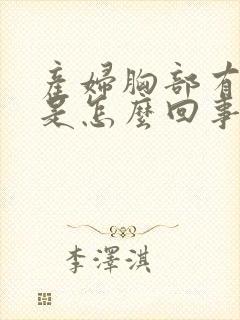 產婦胸部有
是怎麼回事
李澤淇